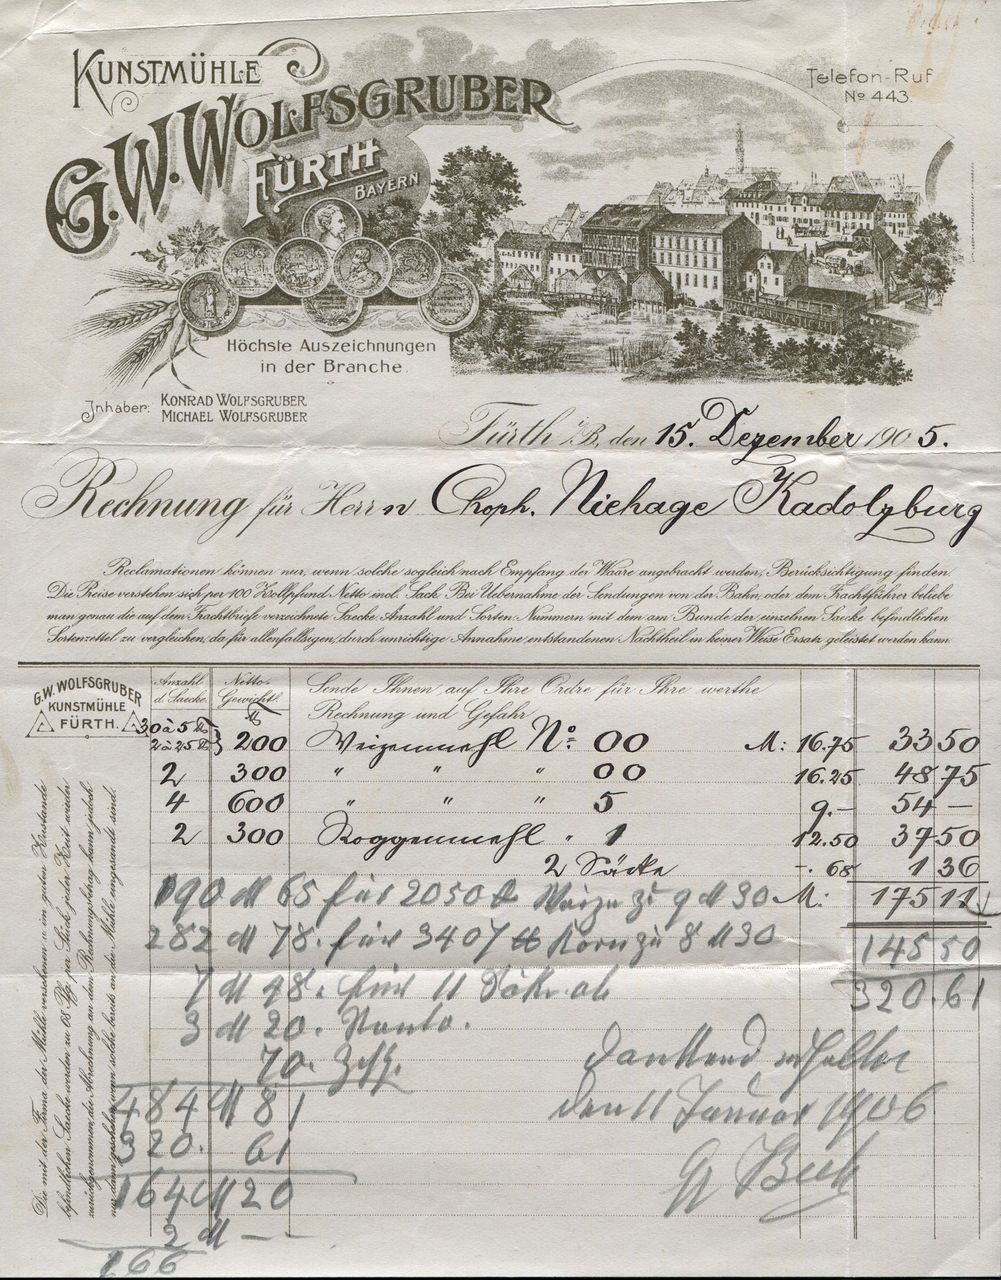 KUNSTMÜHLE
G.W. WOLFSGRUBER
FÜRTH
BAYERN
Telefon-Ruf
No 443.
Höchste Auszeichnungen
in der Branche.
Inhaber: KONRAD WOLFSGRUBER
MICHAEL WOLFSGRUBER
Fürth i/B, den 15. Dezember 1905.
Rechnung für Herrn Choph. Niehage Kadolzburg
Reclamationen können nur, wenn solche sogleich nach Empfang der Waare angebracht werden, Berücksichtigung finden.
Die Preise verstehen sich per 100 Zollpfund Netto incl. Sack. Bei Uebernahme der Sendungen von der Bahn, oder dem Frachtführer beliebe
man genau die auf dem Frachtbrief verzeichnete Saecke-Anzahl und Sorten-Nummern mit dem am Bunde der einzelnen Saecke befindlichen
Sortenzettel zu vergleichen, da für allenfallsigen, durch unrichtige Annahme entstandenen Nachtheil in keiner Weise Ersatz geleistet werden kann.
G.W. WOLFSGRUBER
KUNSTMÜHLE
FÜRTH.
Anzahl
d. Saecke
Netto-
Gewicht
Sende Ihnen auf Ihre Ordre für Ihre werthe
Rechnung und Gefahr
30 à 5 ℔
2 à 25 ℔ } 200 Weizenmehl No. 00 M: 16.75 33 50
2 300 " " " 00 16.25 48 75
4 600 " " " 5 9.- 54 —
2 300 Roggenmehl " 1 12.50 37 50
2 Säcke -.68 1 36
190 M 65 für 2050 ℔ Weizen zu 9 M 30 M: 175 11
282 M 78. für 3407 ℔ Korn zu 8 M 30 145 50
7 M 48. für 11 Säke ab 320.61
3 M 20. Konto.
70.
dankend erhalten
484 M 81 den 11 Januar 1906
320. 61 Beck
164 M 20
2 M — —
166
Die mit der Firma der Mühle versehenen in gutem Zustande
befindlichen Saecke werden zu 68 Pfg. per Stück jeder Zeit wieder
zurückgenommen, die Abrechnung an dem Rechnungsbetrag kann jedoch
nur dann geschehen, wenn solche bereits an die Mühle eingesandt sind.